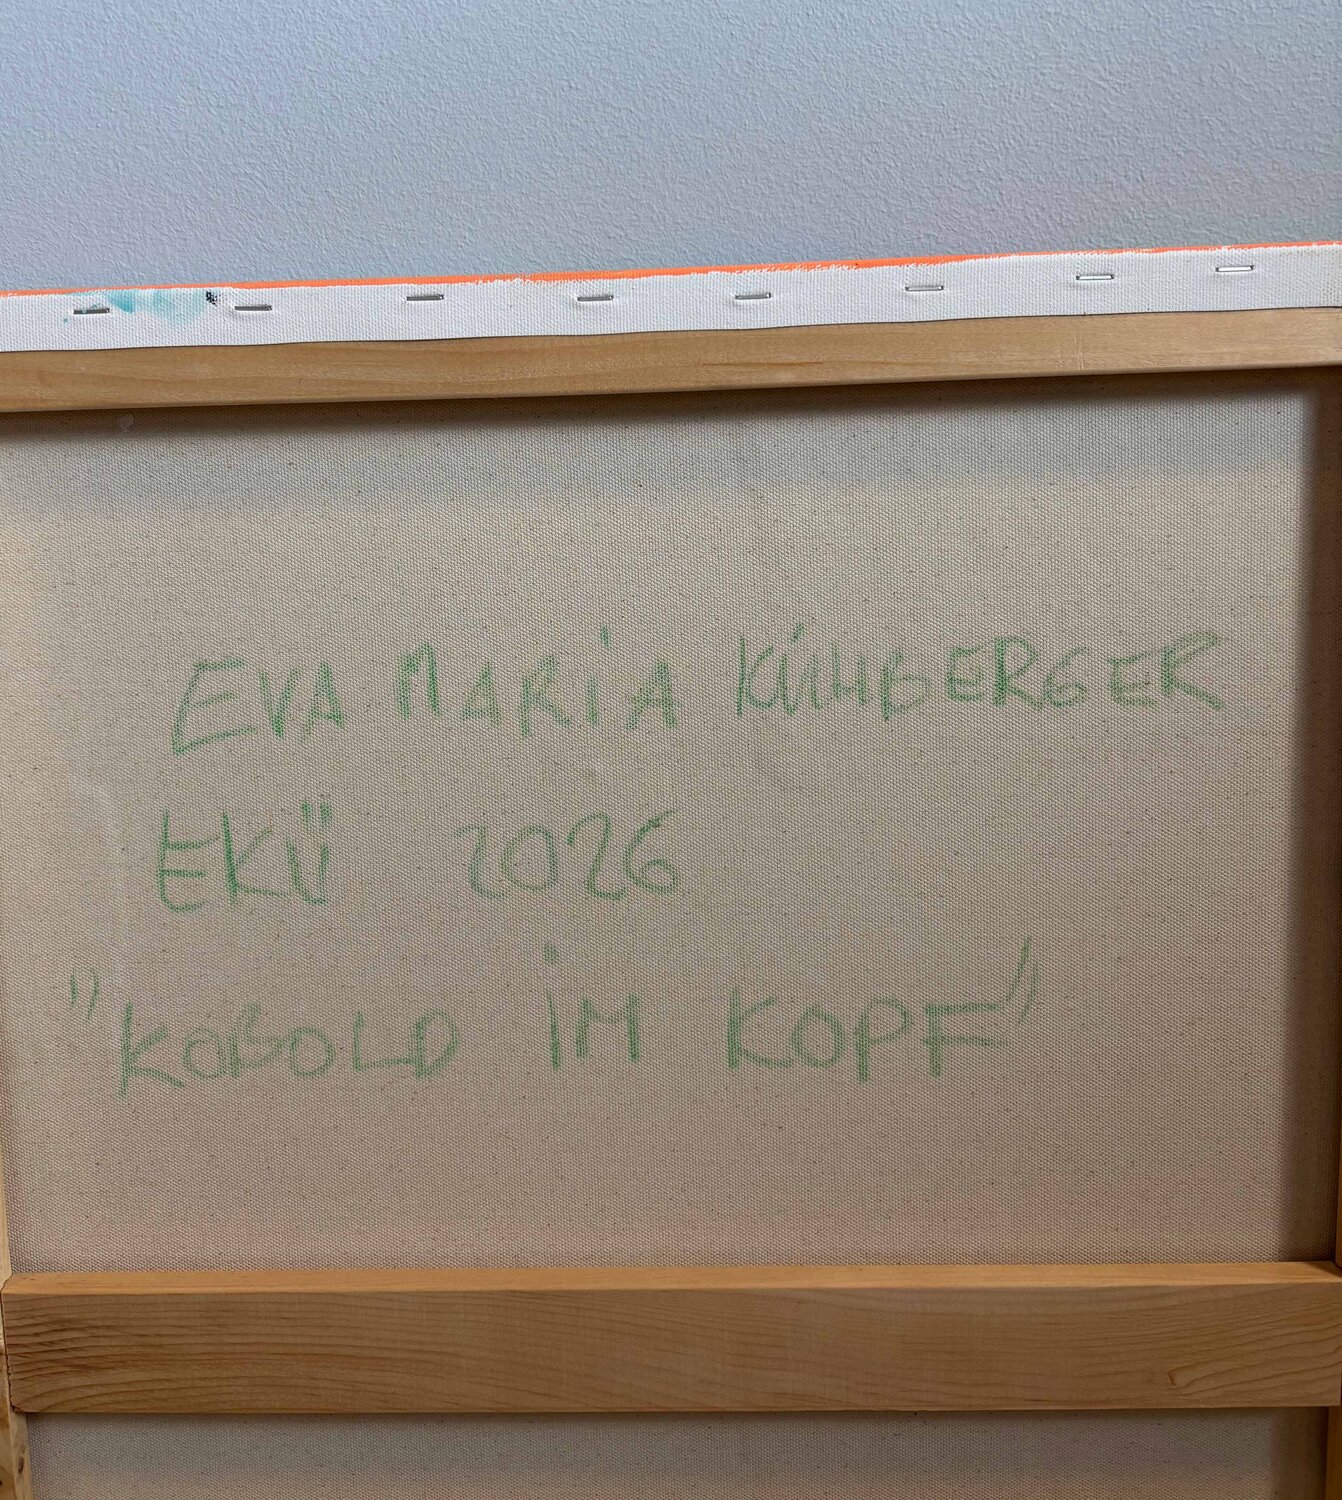 EVA MARiA KÜHBERGER
EKÜ 2026
"KOBOLD iM KOPF"